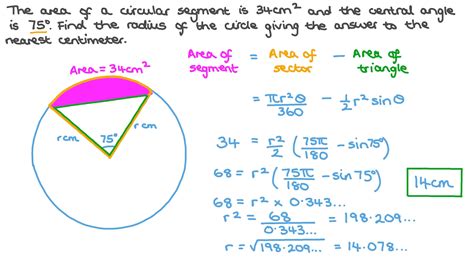 The area of a circular segment is 34cm² and the central angle
is 75°. Find the radius of the circle giving the answer to the
nearest centimeter.
Area = 34cm²
r cm
r cm
75°
Area of segment = Area of sector − Area of triangle
= πr²θ/360 − 1/2 r² sin θ
34 = r²/2 (75π/180 − sin 75°)
68 = r² (75π/180 − sin 75°)
68 = r² × 0.343...
r² = 68/0.343... = 198.209...
r = √198.209... = 14.078...
14cm